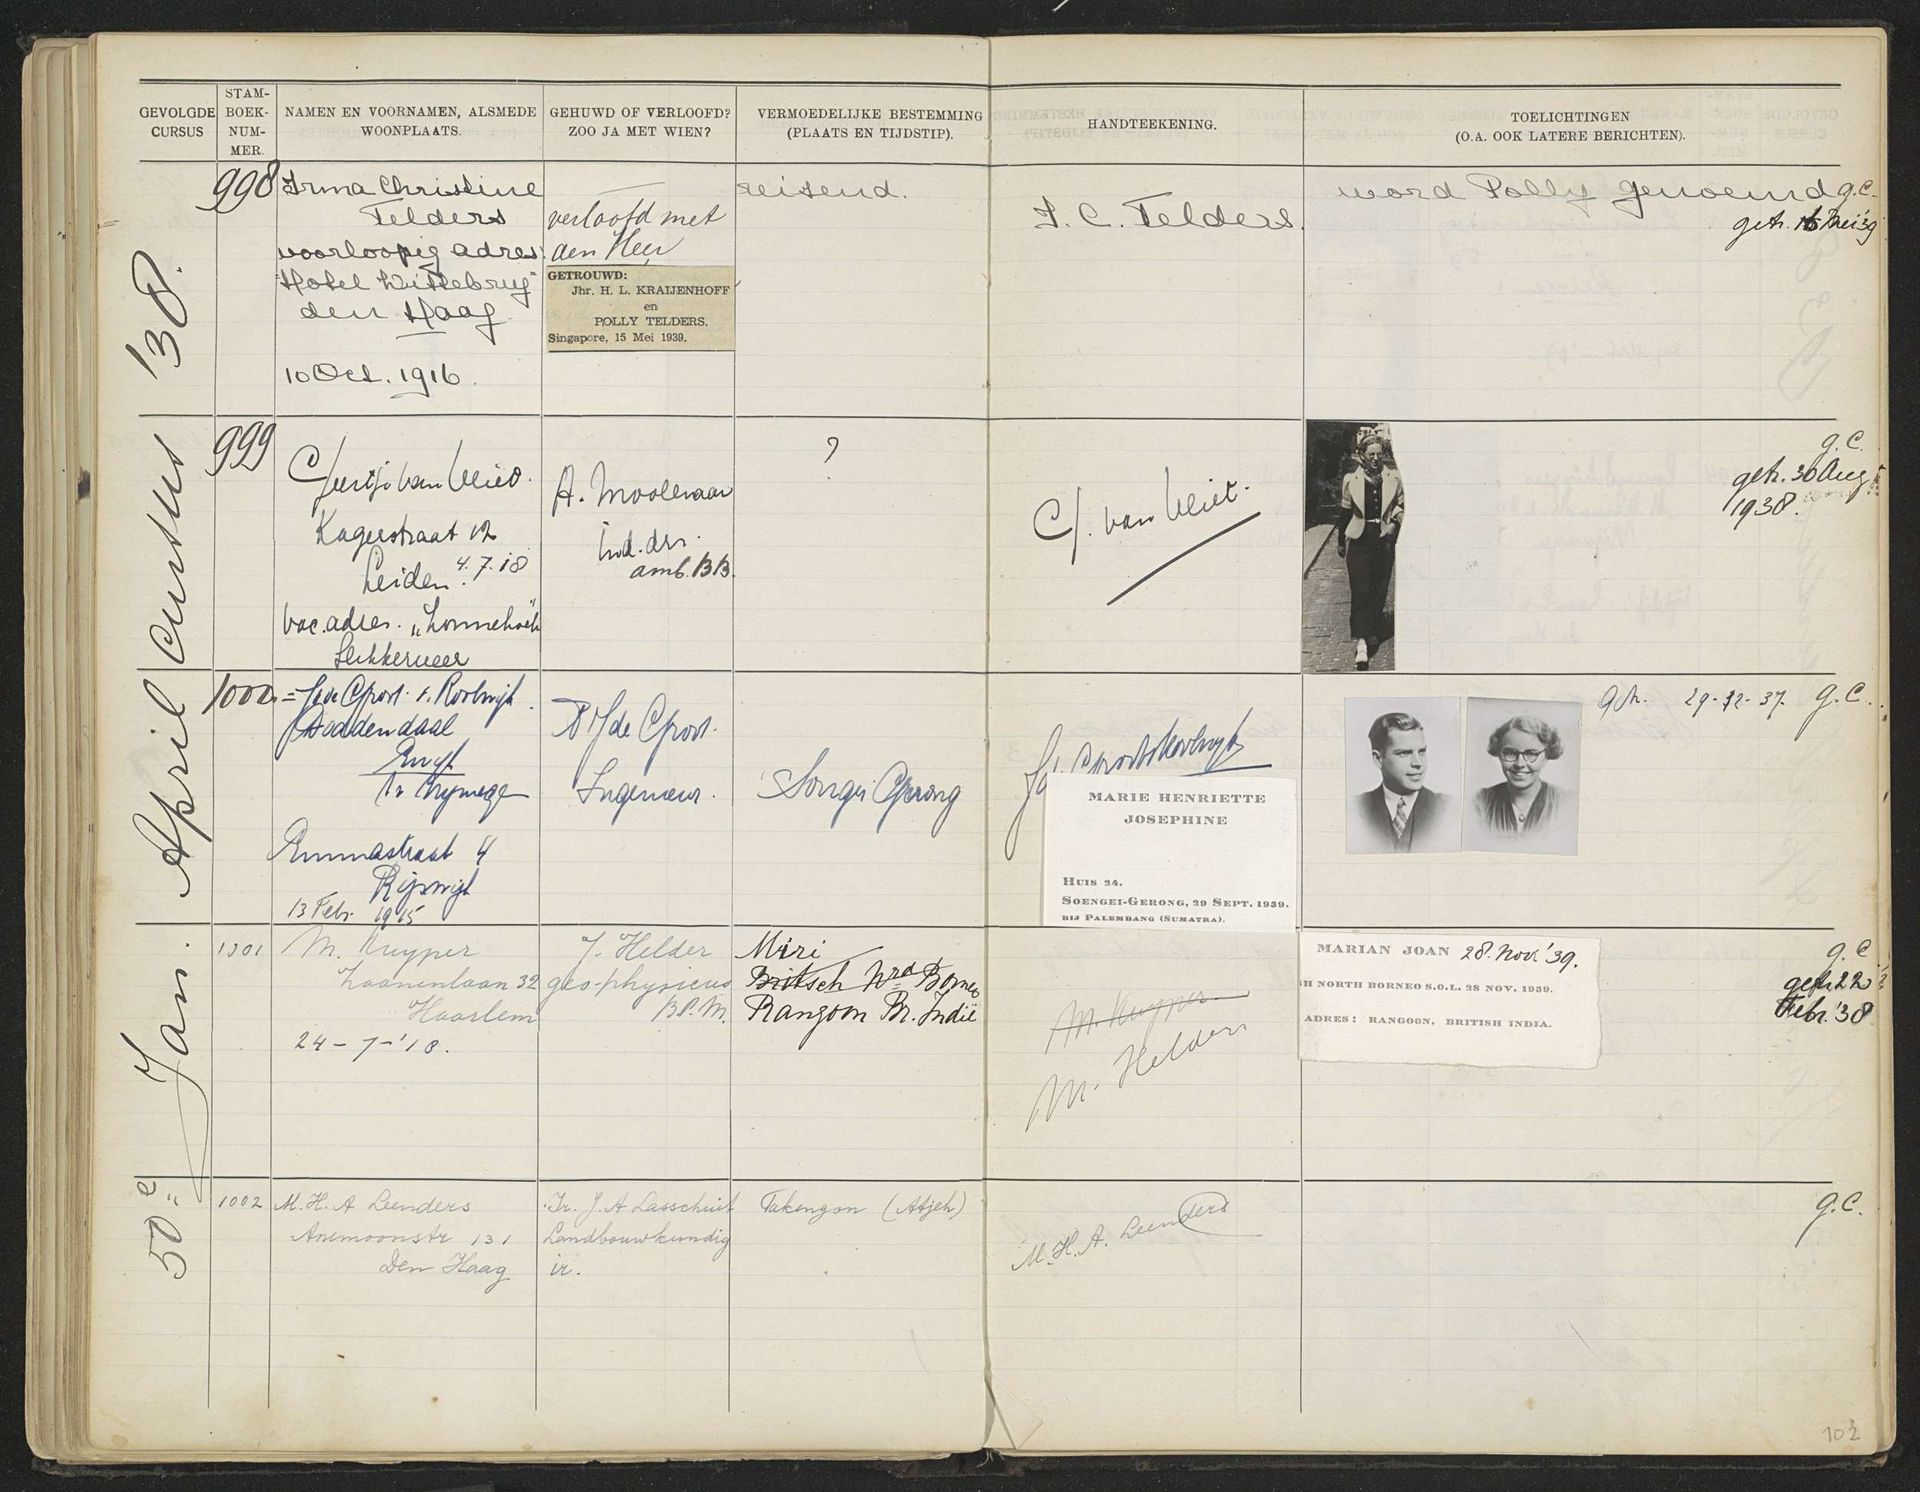 GEVOLGDE CURSUS
STAM-BOEK-NUM-MER.
NAMEN EN VOORNAMEN, ALSMEDE WOONPLAATS.
GEHUWD OF VERLOOFD? ZOO JA MET WIEN?
VERMOEDELIJKE BESTEMMING (PLAATS EN TIJDSTIP).
HANDTEEKENING.
TOELICHTINGEN (O.A. OOK LATERE BERICHTEN).
50e Jan. April cursus '38.
998
Irma Christine
Telders
voorloopig adres:
Hotel Wittebrug
den Haag
10 Oct. 1916.
verloofd met
den Heer
GETROUWD:
Jhr. H. L. KRAIJENHOFF
en
POLLY TELDERS.
Singapore, 15 Mei 1939.
reisend.
I. C. Telders.
word Polly genoemd g.C.
getr. 15 Mei '39
999
van Vliet.
Kagerstraat 12
Leiden. 4.7.18
vac. adres.
Slikkerveer
A. Moolenaar
Ind. der.
amb. BB.
?
C. van Vliet.
g.C.
getr. 30 Aug
1938.
1000
Doddendaal
Nymegen
Emmastraat 4
Rijswijk
13 Febr. 1915
Ingenieur.
Songei Gerong
MARIE HENRIETTE
JOSEPHINE
HUIS 24.
SOENGEI-GERONG, 29 SEPT. 1939.
BIJ PALEMBANG (SUMATRA).
getr. 29-12-37. g.C.
1001
M. Kuyper
Zaanenlaan 32
Haarlem
24-7-'18.
J. Helder
geo-physicus
B.P.M.
Miri
Britsch Nrd Borneo
Rangoon Br. Indië
M. Kuyper
M. Helder
MARIAN JOAN 28. Nov. '39.
H NORTH BORNEO S.O.L. 28 NOV. 1939.
ADRES: RANGOON, BRITISH INDIA.
g.C.
getr. 22
Febr. '38
1002
M. H. A Leenders
Anemoonstr 131
Den Haag
Ir. J. A Lasschuit
Landbouwkundig
ir.
Takengon (Atjeh)
M. H. A. Leenders
g.C.
102